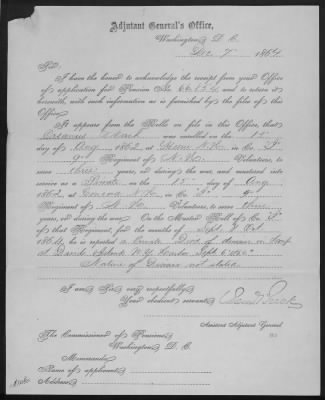 Adjutant General's Office,
Washington, D. C.
Dec 7, 1864
Sir:
I have the honor to acknowledge the receipt from your Office
of application for Pension No. 66.834, and to return it
herewith, with such information as is furnished by the files of this
Office.
It appears from the Rolls on file in this Office, that
was enrolled on the
day of Aug, 1862, at N.H., in Co.
9" Regiment of N. H. Volunteers, to serve
three years, or during the war, and mustered into
service as a Private on the day of Aug,
1862, at Concord N.H., in Co. 9"
Regiment of N. H. Volunteers, to serve three
years, or during the war. On the Muster Roll of Co.
of that Regiment, for the months of Sept & Oct
1864, he is reported a Private Died of disease in Hosp
at Davids Island N.Y. Harbor Sept
Nature of Disease not stated.
I am, Sir, very respectfully,
Your obedient servant,
Assistant Adjutant General
The Commissioner of Pensions,
Washington, D. C.
Memoranda:
Name of applicant,
Address,